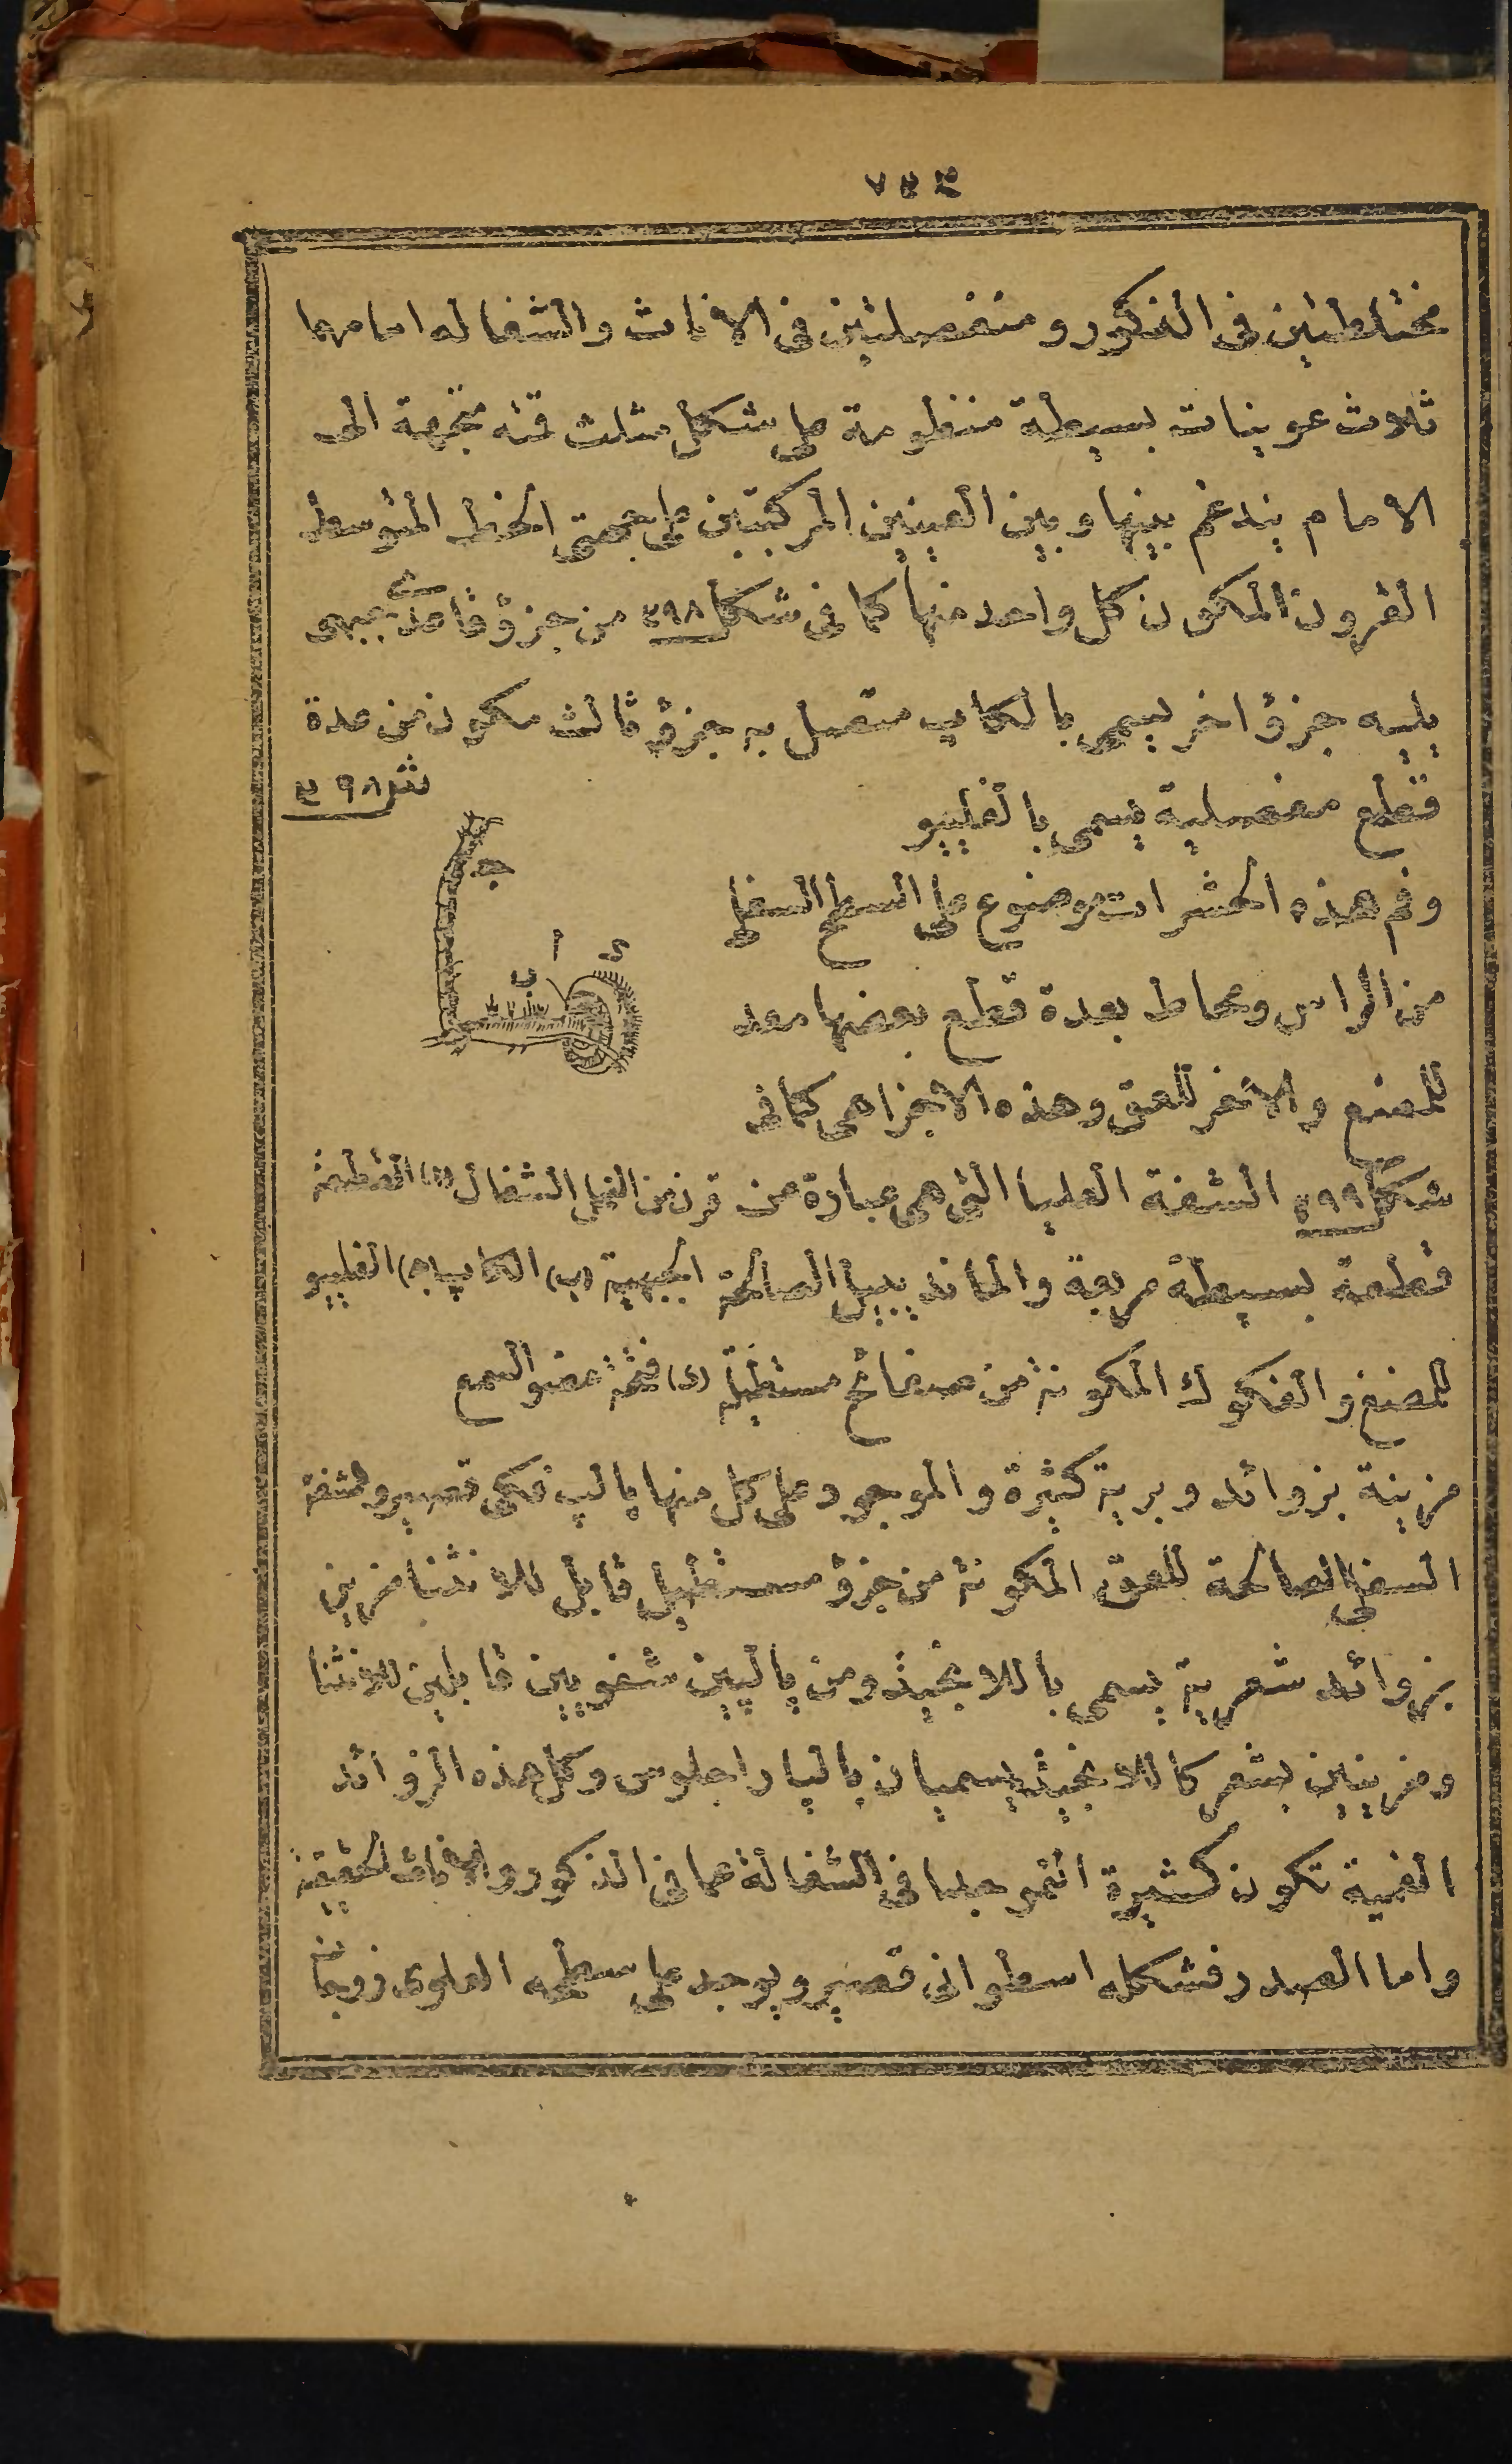 ٧٤٣
مختلطتين فى الذكور ومنفصلتين فى الاناث والشغاله امامهما
ثلاث عوينات بسيطة منظومة على شكل مثلث قمته متجهة الى
الامام يندغم بينها وبين العينين المركبتين على جهتى الخط المتوسط
القرون المكون كل واحد منها كما فى شكل ٤٩٨ من جزؤ قاعدى جبهى
يليه جزؤ اخر يسمى بالكاپ متصل به جزؤ ثالث مكون من عدة
قطع مفصلية يسمى بالفليبو
ش ٤٩٨
وفم هذه الحشرات موضوع على السطح السفلى
من الراس ومحاط بعدة قطع بعضها معد
للمضغ والاخر للعق وهذه الاجزا هى كما فى
شكل ٤٩٩ الشفة العليا التى هى عبارة عن
قطعة بسيطة مربعة والماندبيل الصالحة
للمضغ والفكوك المكونة من صفائح مستطيلة
قرن من النحل الشغال (ا) القطعة
الجبهية (ب) الكاپ (ج) الفليبو
(د) فتحة عضو السمع
ج
ا
ب
د
مزينة بزوائد وبرية كثيرة والموجود على كل منها پالپ فكى قصير والشفة
السفلى الصالحة للعق المكونة من جزؤ مستطيل قابل للانثنا مزين
بزوائد شعرية يسمى باللانجيث ومن پالپين شفويين قابلين للانثنا
ومزينين بشعر كاللانجيث يسميان بالپاراجلوس وكل هذه الزوائد
الفمية تكون كثيرة النمو جدا فى الشغالة عما فى الذكور والاناث الحقيقية
واما الصدر فشكله اسطوانى قصير ويوجد على سطحه العلوى زوجان